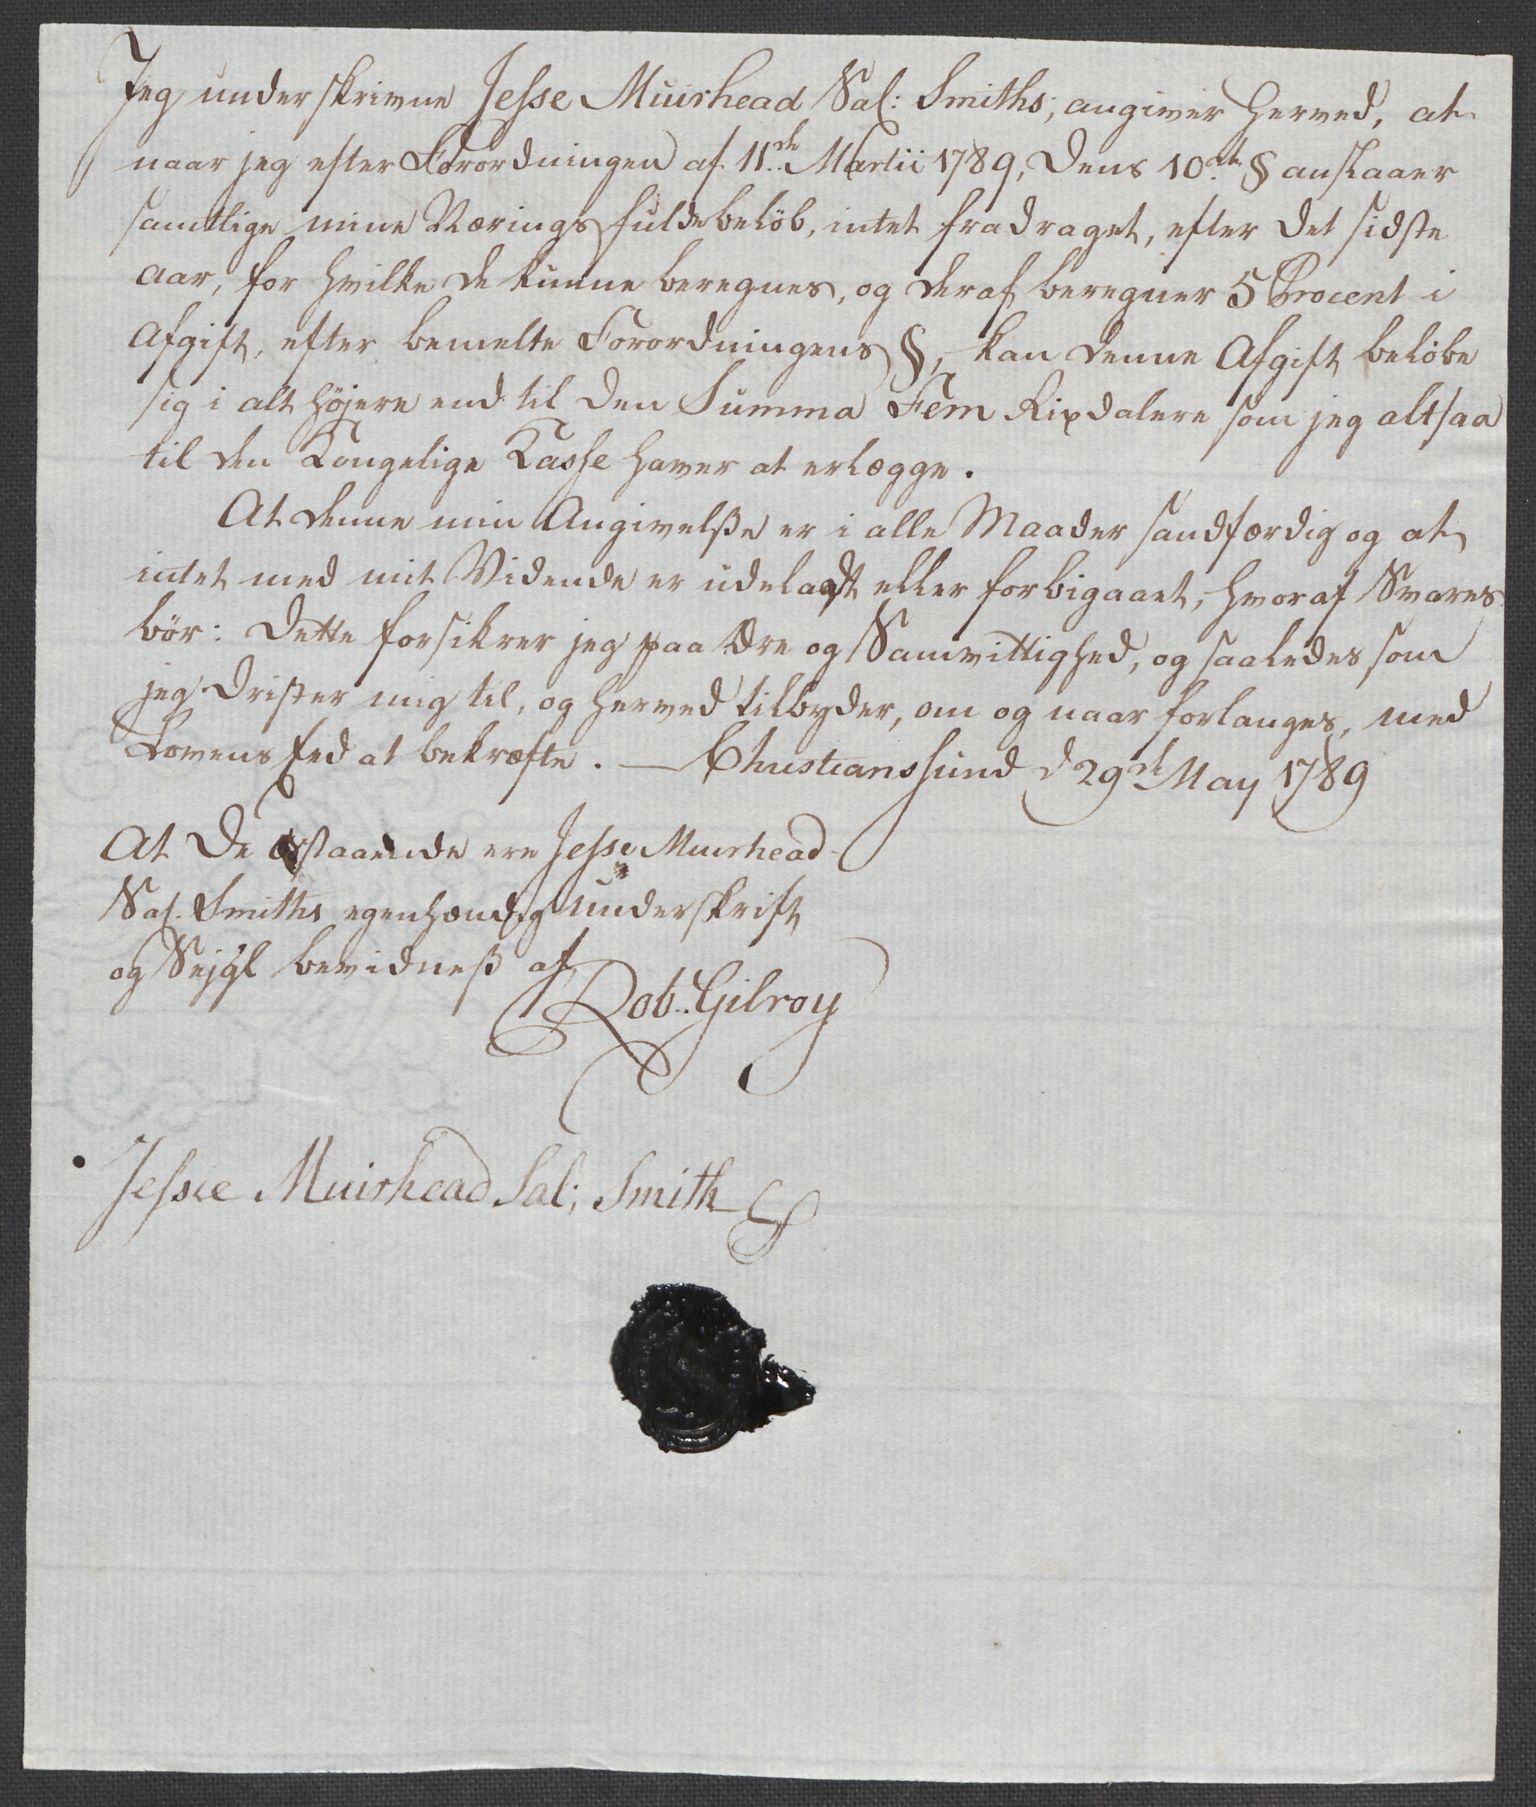 Jeg underskrivne Jesse Muirhead Sal: Smiths, angiver herved, at
naar jeg efter Forordningen af 11te Martii 1789, dens 10de § anslaaer
samtlige mine Nærings fulde beløb, intet fradraget, efter det sidste
Aar, for hvilke de kunne beregnes, og deraf beregner 5 Procent i
Afgift, efter bemelte Forordningens §, kan denne Afgift beløbe
sig i alt højere end til den Summa Fem Rixdalere som jeg altsaa
til den Kongelige Kasse haver at erlægge.
At denne min Angivelße er i alle Maader sandfærdig og at
intet med mit Vidende er udeladt eller forbigaaet, hvoraf Svares
bör: dette forsikrer jeg paa Ære og Samvittighed, og saaledes som
jeg drister mig til, og herved tilbyder, om og naar forlanges, med
Lovens Eed at bekræfte. — Christianssund d 29de May 1789
At de staaende ere Jesse Muirhead
Sal. Smiths egenhændig Underskrift
og Sejgl bevidneß af
Rob. Gilroy
Jessie Muirhead Sal; Smith